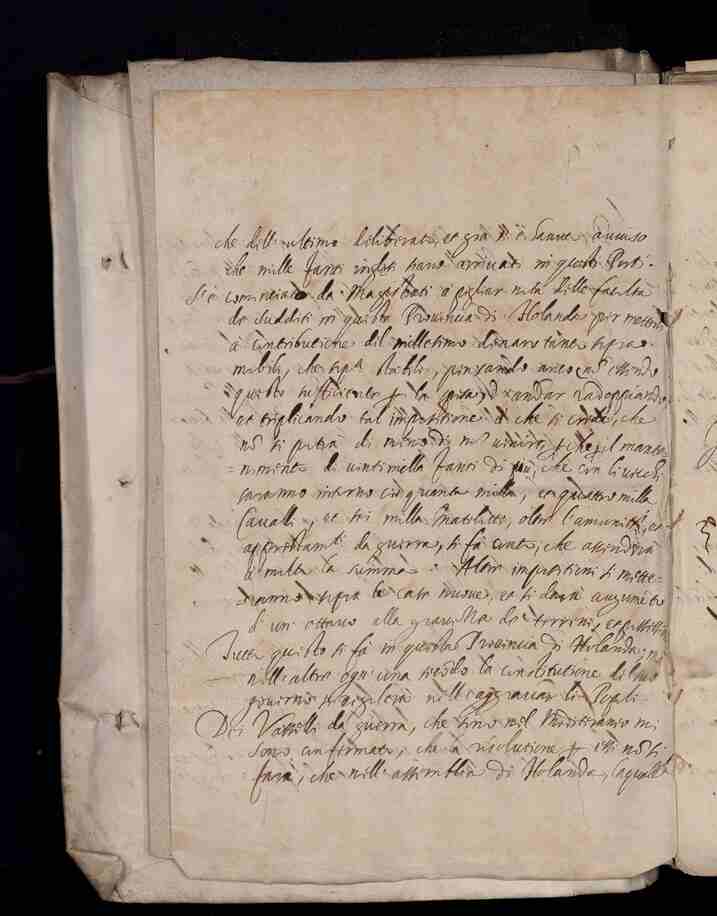 che dell'ultimo deliberato, et già s'è havuto avviso
che mille fanti inglesi siano arrivati in questi Porti.
S'è cominciato da Magistrati a pigliar nota delle facoltà
de sudditi in questa Provincia di Holanda per metter
a contributione del millesimo denaro tanto sopra
mobili, che sopra stabili, pensando anco, non essendo
questo sufficiente, d'andar radoppiando
et triplicando tal impositione; di che si crede, che
non si potrà di meno, che il mante=
=nimento di ventimilla fanti di più, che con li vecchi
saranno intorno cinquanta milla, et quattro milla
Cavalli, et tre milla oltre l'
da guerra, si fà conto, che ascenderà
à molto la summa. Altre impositioni si mette=
=ranno sopra le case nuove, et si darà augumento
d'un ottavo alla gravezza de terreni,
Tutto questo si fà in questa Provincia di Holanda;
nell'altre ogn'una secondo la constitutione del suo
governo nell'aggravar li Popoli.
Dei Vasselli da guerra, che sono nel Mediteraneo mi
sono confirmato, che la risolutione per essi non si
farà, che nell'assemblea di Holanda, la quale